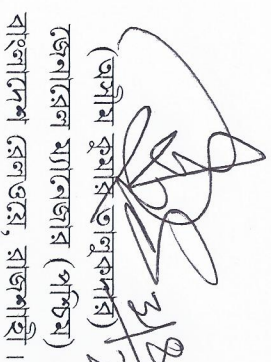 (অসীম কুমার তালুকদার)
জেনারেল ম্যানেজার (পশ্চিম)
বাংলাদেশ রেলওয়ে, রাজশাহী।